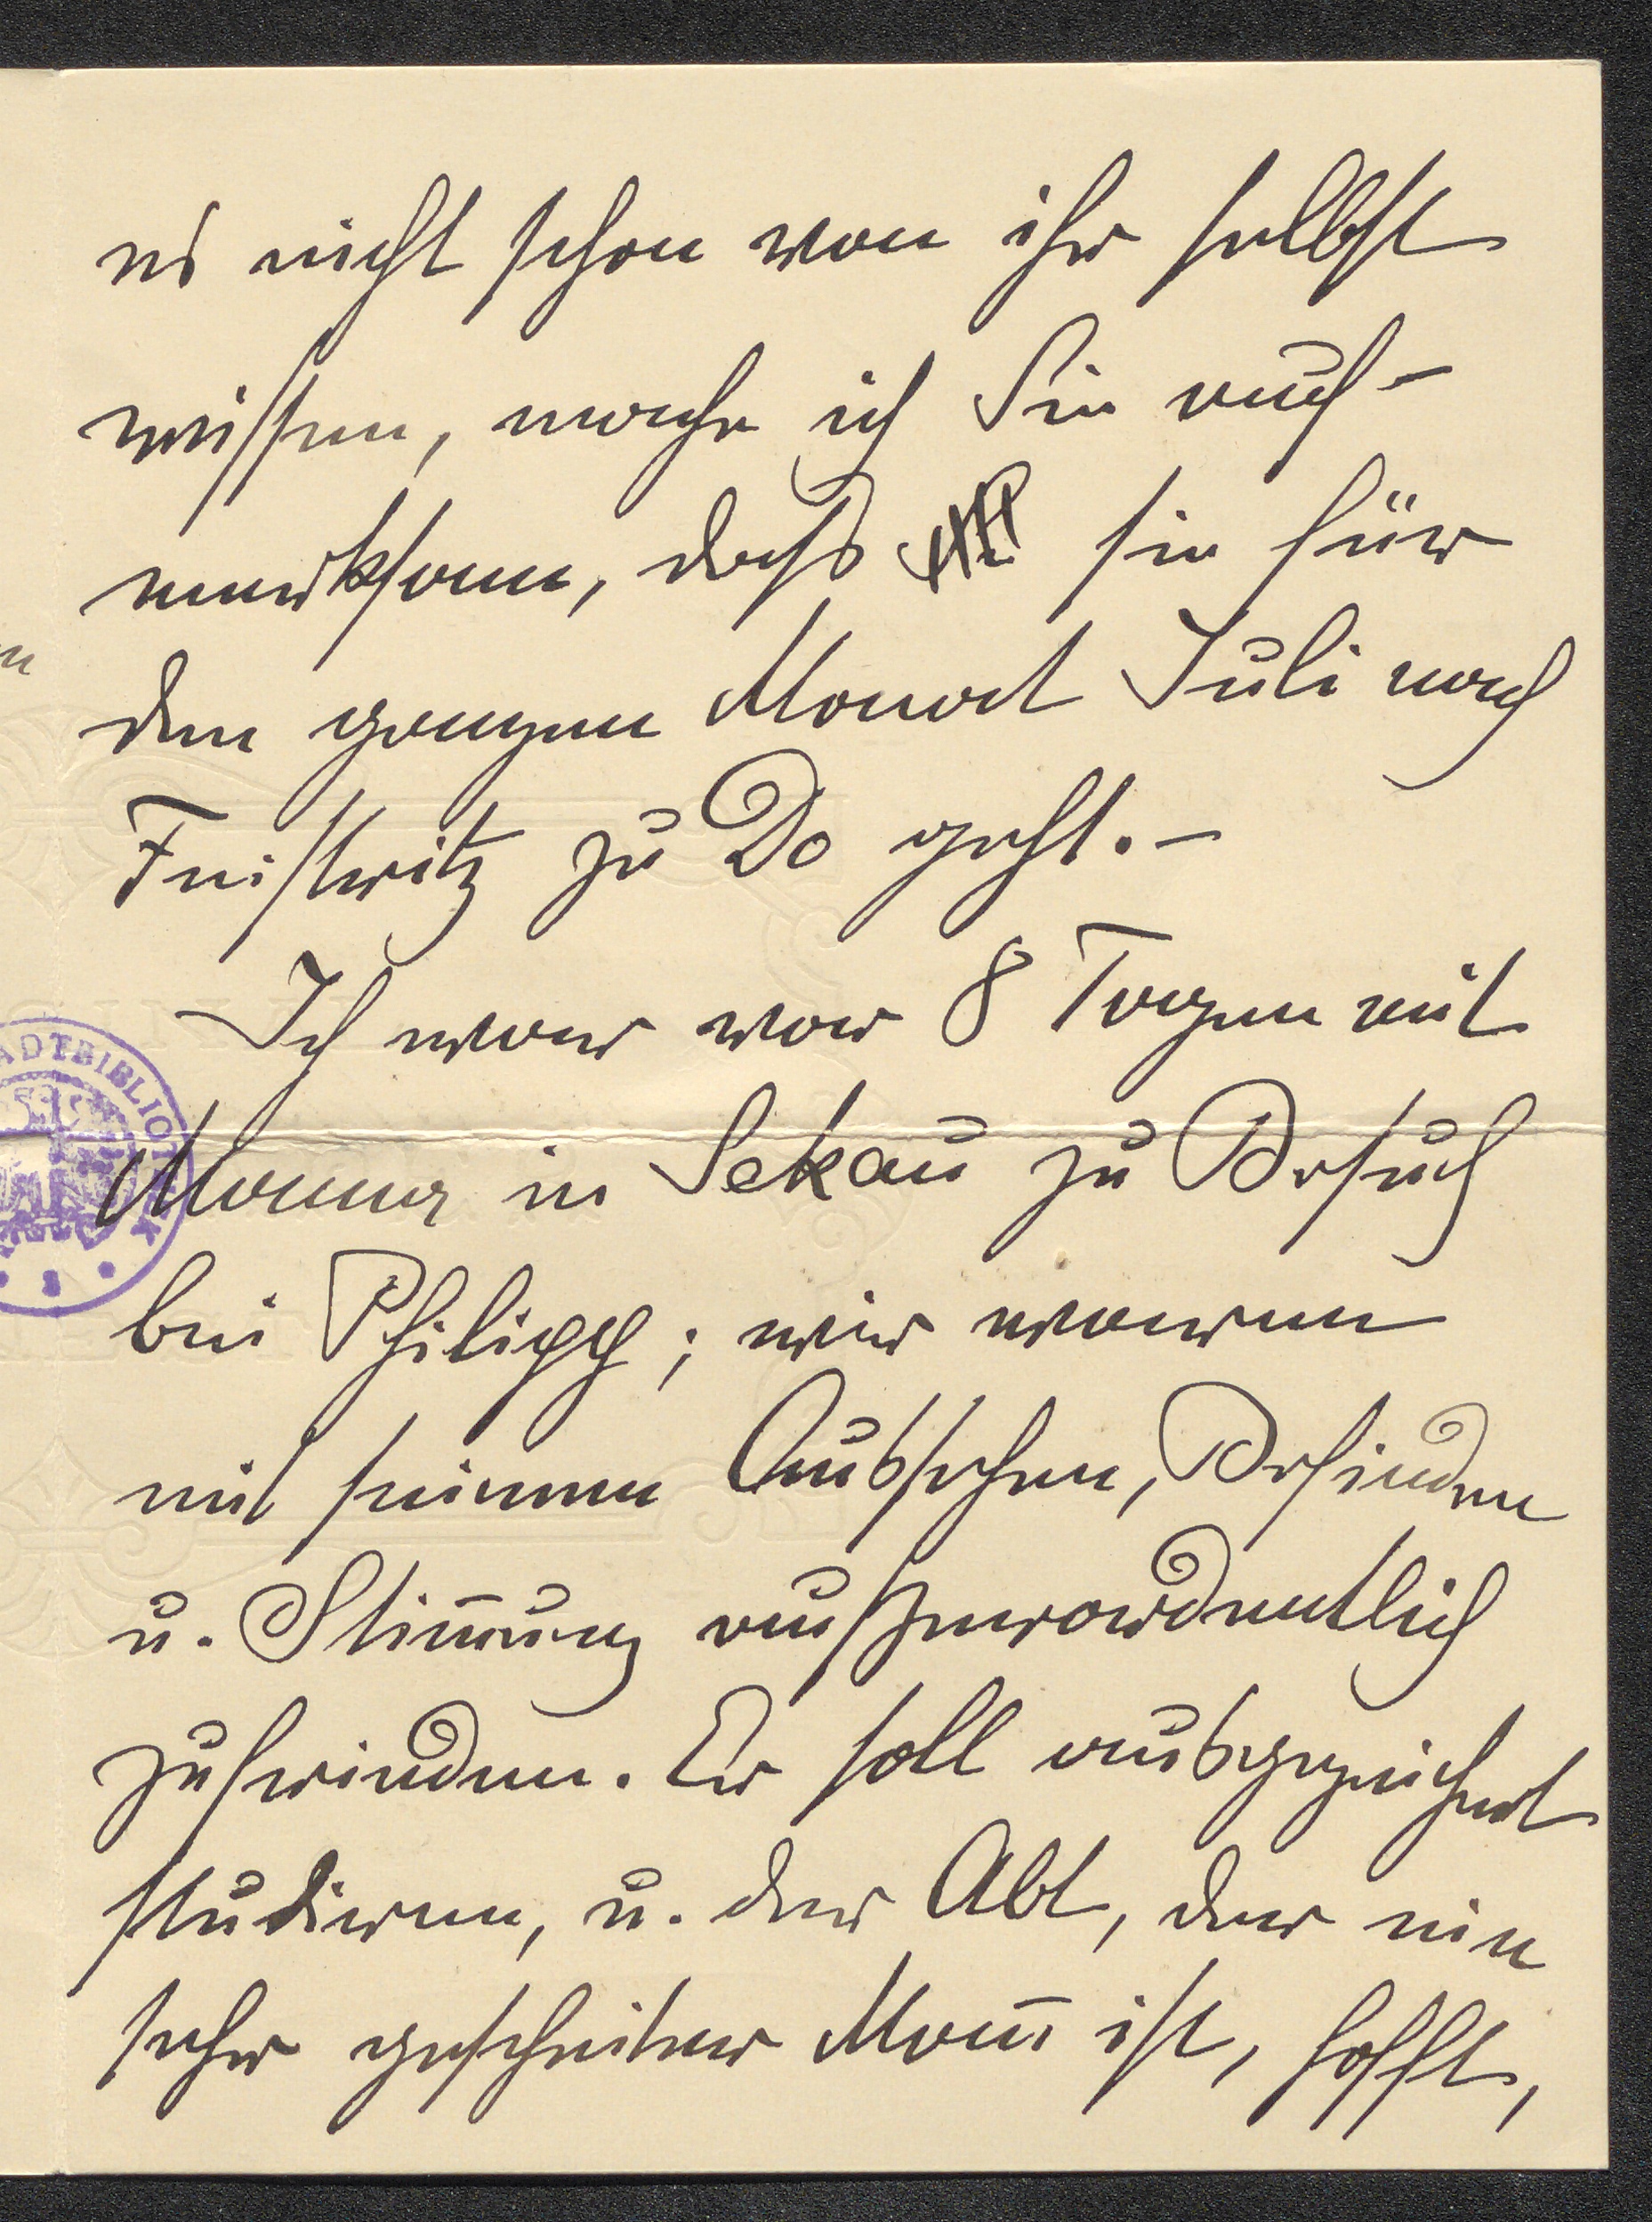 es nicht schon von ihr selbst
wissen, mache ich Sie auf-
merksam, dass sie für
den ganzen Monat Juli nach
Feistritz zu Do geht. –
Ich war vor 8 Tagen mit
Mama in Sekau zu Besuch
bei Philipp; wir waren
mit seinem Aussehen, Befinden
u. Stim̄ung ausserordentlich
zufrieden. Er soll ausgezeichnet
studieren, u. der Abt, der ein
sehr gescheiter Man̄ ist, hofft,
ADTBIBLIOT